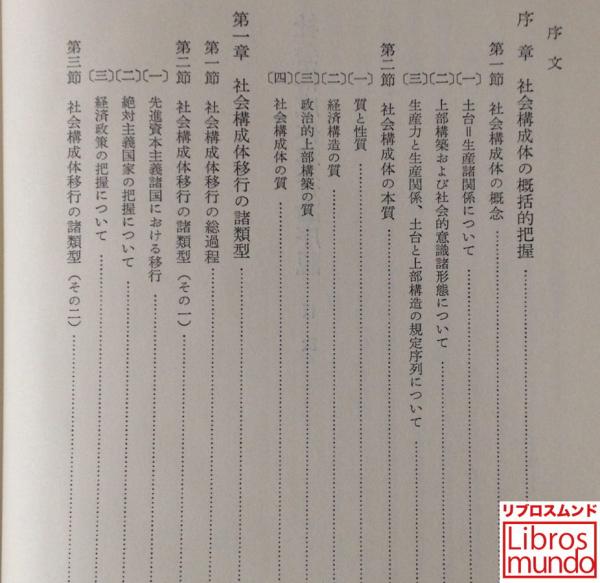 序文
序章 社会構成体の概括的把握
第一節 社会構成体の概念
〔一〕 土台＝生産諸関係について
〔二〕 上部構築および社会的意識諸形態について
〔三〕 生産力と生産関係、土台と上部構造の規定序列について
第二節 社会構成体の本質
〔一〕 質と性質
〔二〕 経済構造の質
〔三〕 政治的上部構築の質
〔四〕 社会構成体の質
第一章 社会構成体移行の諸類型
第一節 社会構成体移行の総過程
第二節 社会構成体移行の諸類型（その一）
〔一〕 先進資本主義諸国における移行
〔二〕 絶対主義国家の把握について
〔三〕 経済政策の把握について
第三節 社会構成体移行の諸類型（その二）
リブロスムンド
Libros
mundo